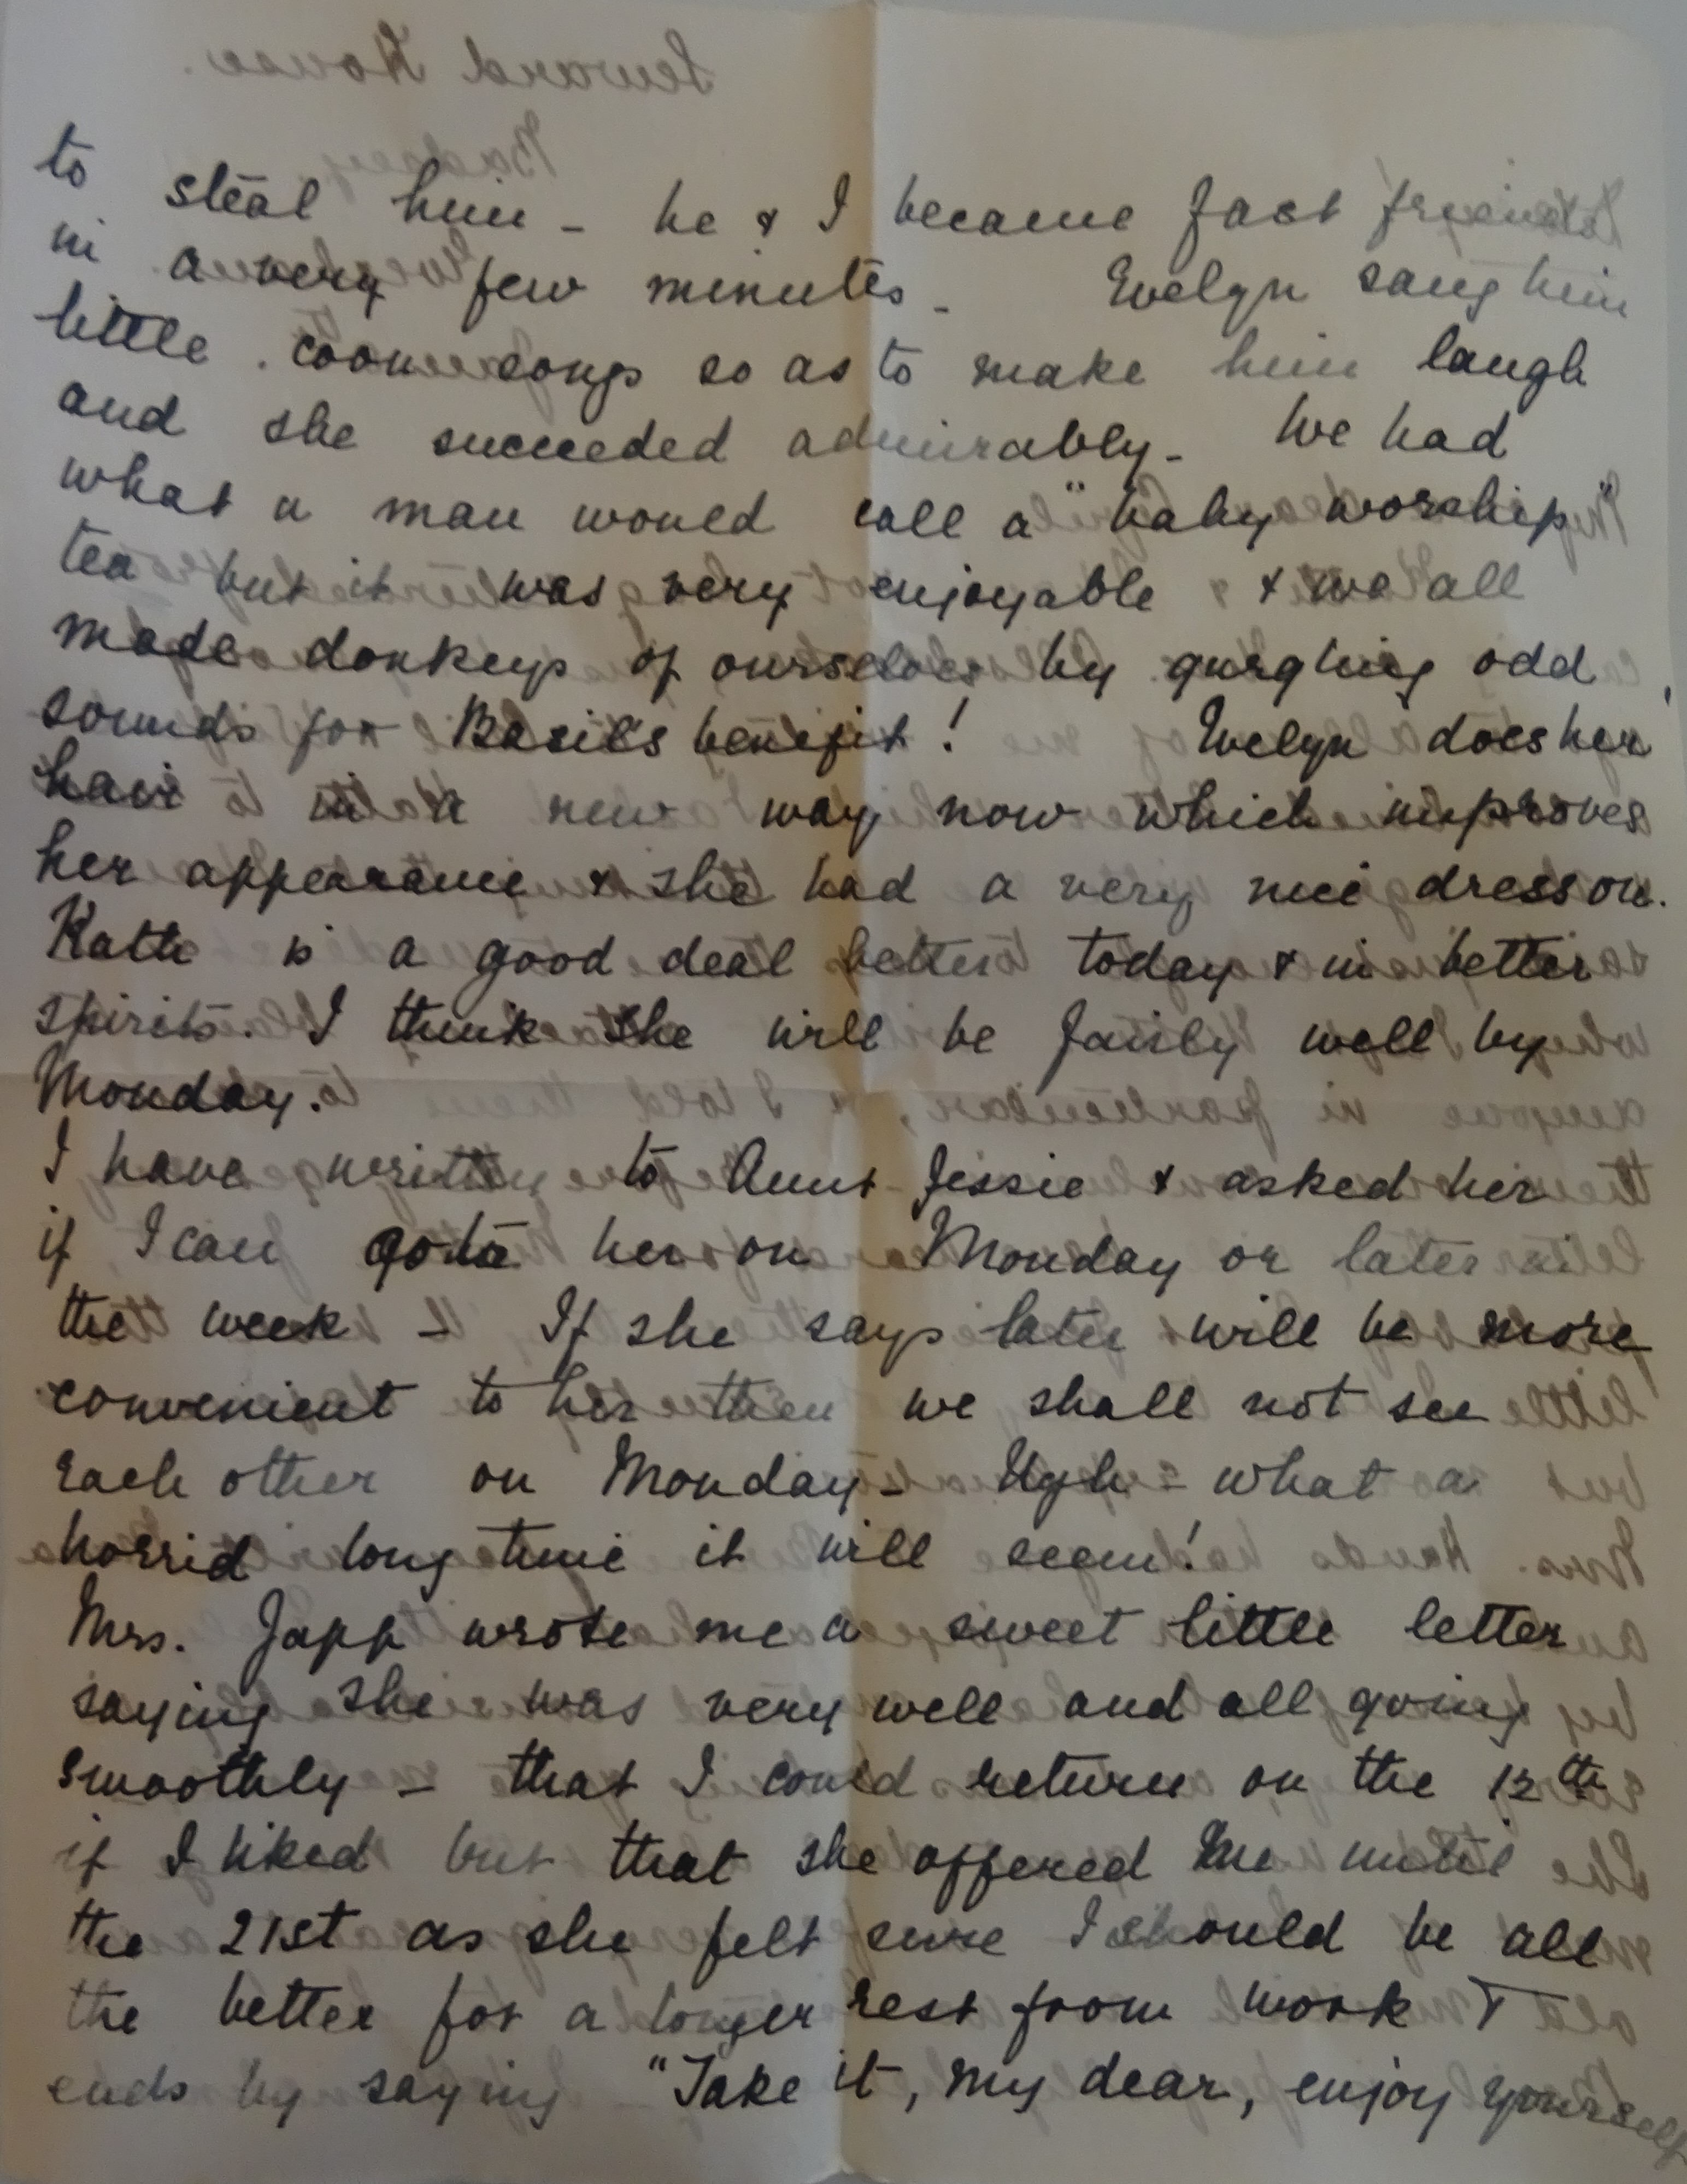 to steal him - he & I became fast friends
in a very few minutes - Evelyn sang him
little coon songs so as to make him laugh
and she succeeded admirably - We had
what a man would call a "baby worship"
tea but it was very enjoyable & we all
made donkeys of ourselves by gurgling odd
sounds for Basil's benefit! Evelyn does her
hair in a new way now which improves
her appearance & she had a very nice dress on.
Katie is a good deal better today & in better
spirits. I think she will be fairly well by
Monday.
I have written to Aunt Jessie & asked her
if I can go to her on Monday or later in
the week - If she says later will be more
convenient to her then we shall not see
each other on Monday - Ugh - what a
horrid long time it will seem!
Mrs. Japp wrote me a sweet little letter
saying she was very well and all going
smoothly - that I could return on the 12th
if I liked but that she offered me until
the 21st as she felt sure I should be all
the better for a longer rest from work &
ends by saying - "Take it, my dear, enjoy yourself